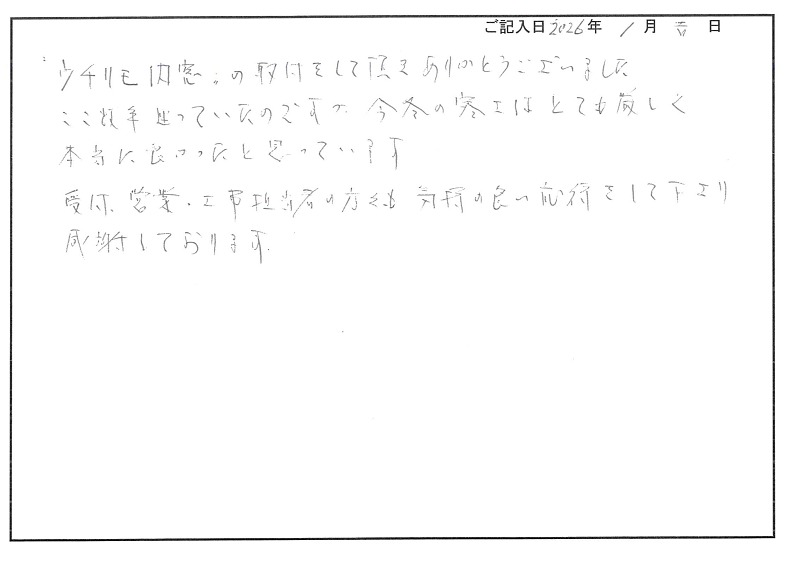 ご記入日 2026年 1月 吉日
ウチリモ内窓の取付をして頂きありがとうございました
ここ数年迷っていたのですが、今冬の寒さはとても厳しく
本当に良かったと思っています
受付、営業、工事担当者の方々も気持の良い応待をして下さり
感謝しております。